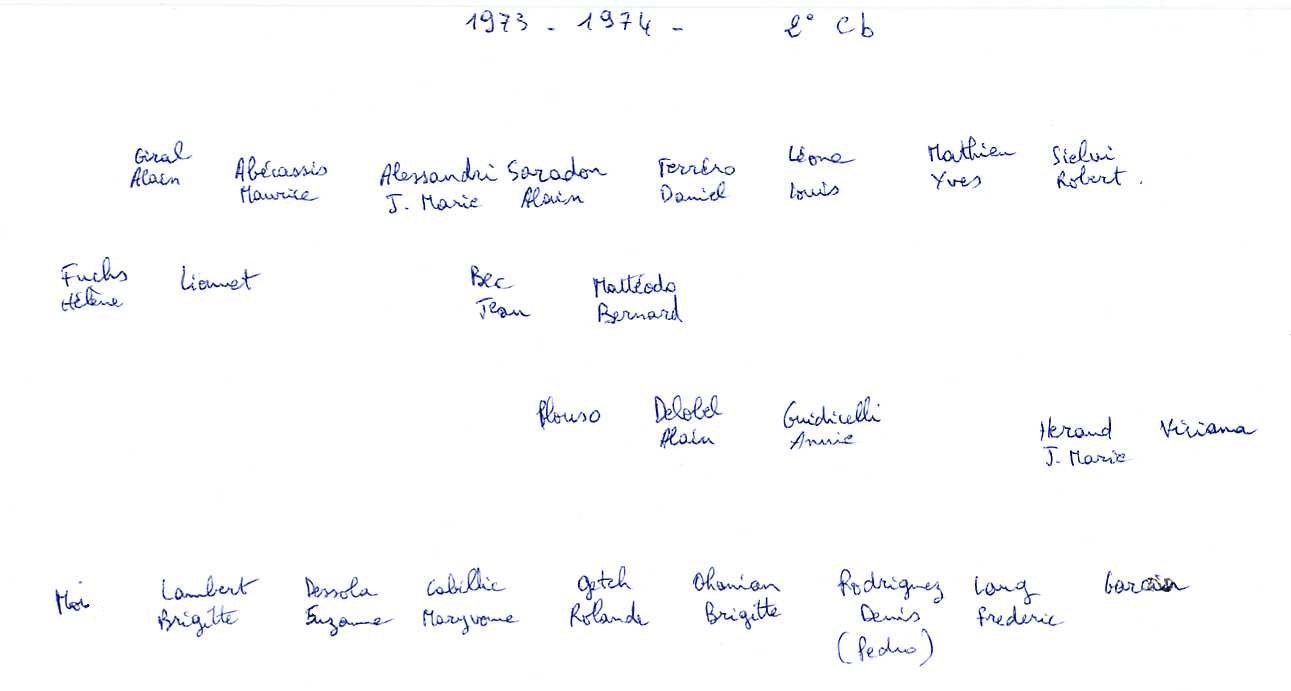 1973 - 1974 - 2° Cb
Giral Abécassis Alessandri Saradon Ferréro Léone Mathieu Sielvi
Alain Maurice J. Marie Alain Daniel Louis Yves Robert.
Fuchs Lionnet Bec Mattéodo
Hélène Jean Bernard
Alonso Delobel Guidicelli Heraud Viciana
Alain Annie J. Marie
Moi Lambert Dessola Cabillic Getch Ohanian Rodriguez Lang
Brigitte Suzanne Maryvonne Rolande Brigitte Denis Frederic
(Pedro)